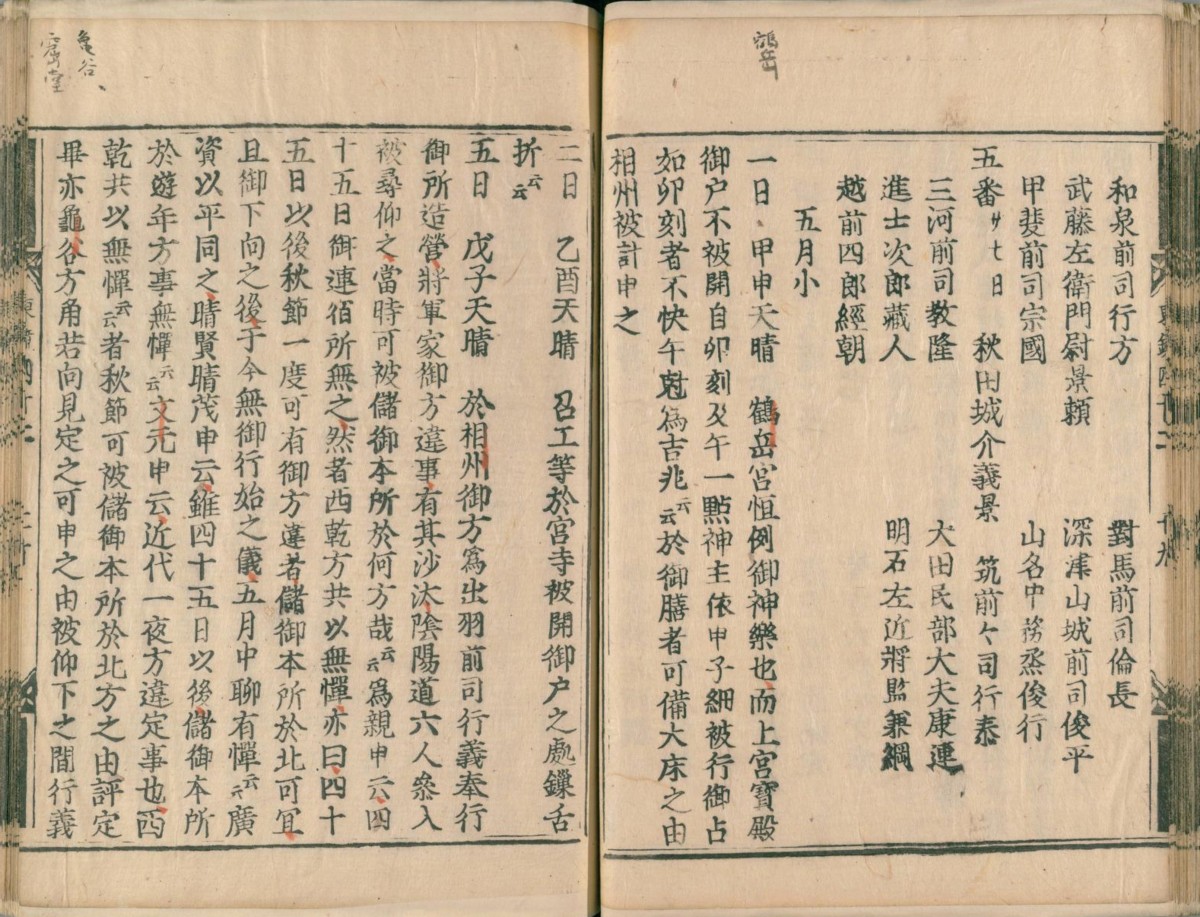 鶴岳
和泉前司行方　對馬前司倫長
武藤左衛門尉景頼　深津山城前司俊平
甲斐前司宗國　山名中務丞俊行
五番廿七日　秋田城介義景　筑前々司行泰
三河前司教隆　大田民部大夫康連
進士次郎藏人　明石左近將監兼綱
越前四郎經朝
五月小
一日甲申天晴　鶴岳宮恒例御神樂也而上宮寶殿
御戸不被開自卯刻及午一點神主依申子細被行御占
如卯刻者不快午尅爲吉兆云云於御膳者可備大床之由
相州被計申之
二日　乙酉天晴　召工等於宮寺被開御戸之處鏁舌
折云云
五日　戊子天晴　於相州御方爲出羽前司行義奉行
御所造營將軍家御方違事有其沙汰陰陽道六人參入
被尋仰之當時可被儲御本所於何方哉云云爲親申云四
十五日御連宿所無之然者西乾方共以無憚亦曰四十
五日以後秋節一度可有御方違者儲御本所於北可宜
且御下向之後于今無御行始之儀五月中聊有憚云云廣
資以平同之晴賢晴茂申云雖四十五日以後儲御本所
於遊年方事無憚云云文元申云近代一夜方違定事也西
乾共以無憚云云者秋節可被儲御本所於北方之由評定
畢亦龜谷方角若向見定之可申之由被仰下之間行義
亀谷
窟堂